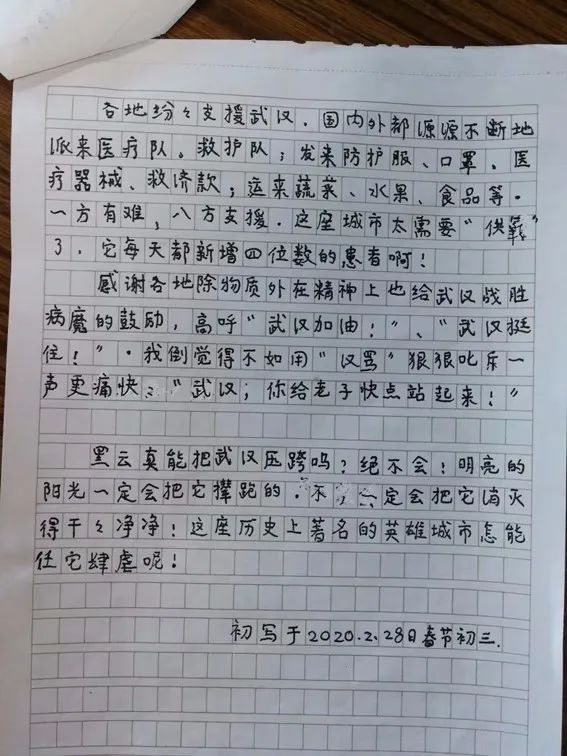 各地纷々支援武汉.国内外都源源不断地
派来医疗队。救护队；发来防护服、口罩、医
疗器械、救济款；运来蔬菜、水果、食品等.
一方有难，八方支援.这座城市太需要“供氧”
了.它每天都新增四位数的患者啊！
感谢各地除物质外在精神上也给武汉战胜
病魔的鼓励，高呼“武汉加油！”、“武汉挺
住！”.我倒觉得不如用“汉骂”狠狠叱斥一
声更痛快："武汉；你给老子快点站起来！"
黑云真能把武汉压跨吗？绝不会！明亮的
阳光一定会把它撵跑的.不一定会把它消灭
得干々净净！这座历史上著名的英雄城市怎能
任它肆虐呢！
初写于2020.2.28日春节初三.